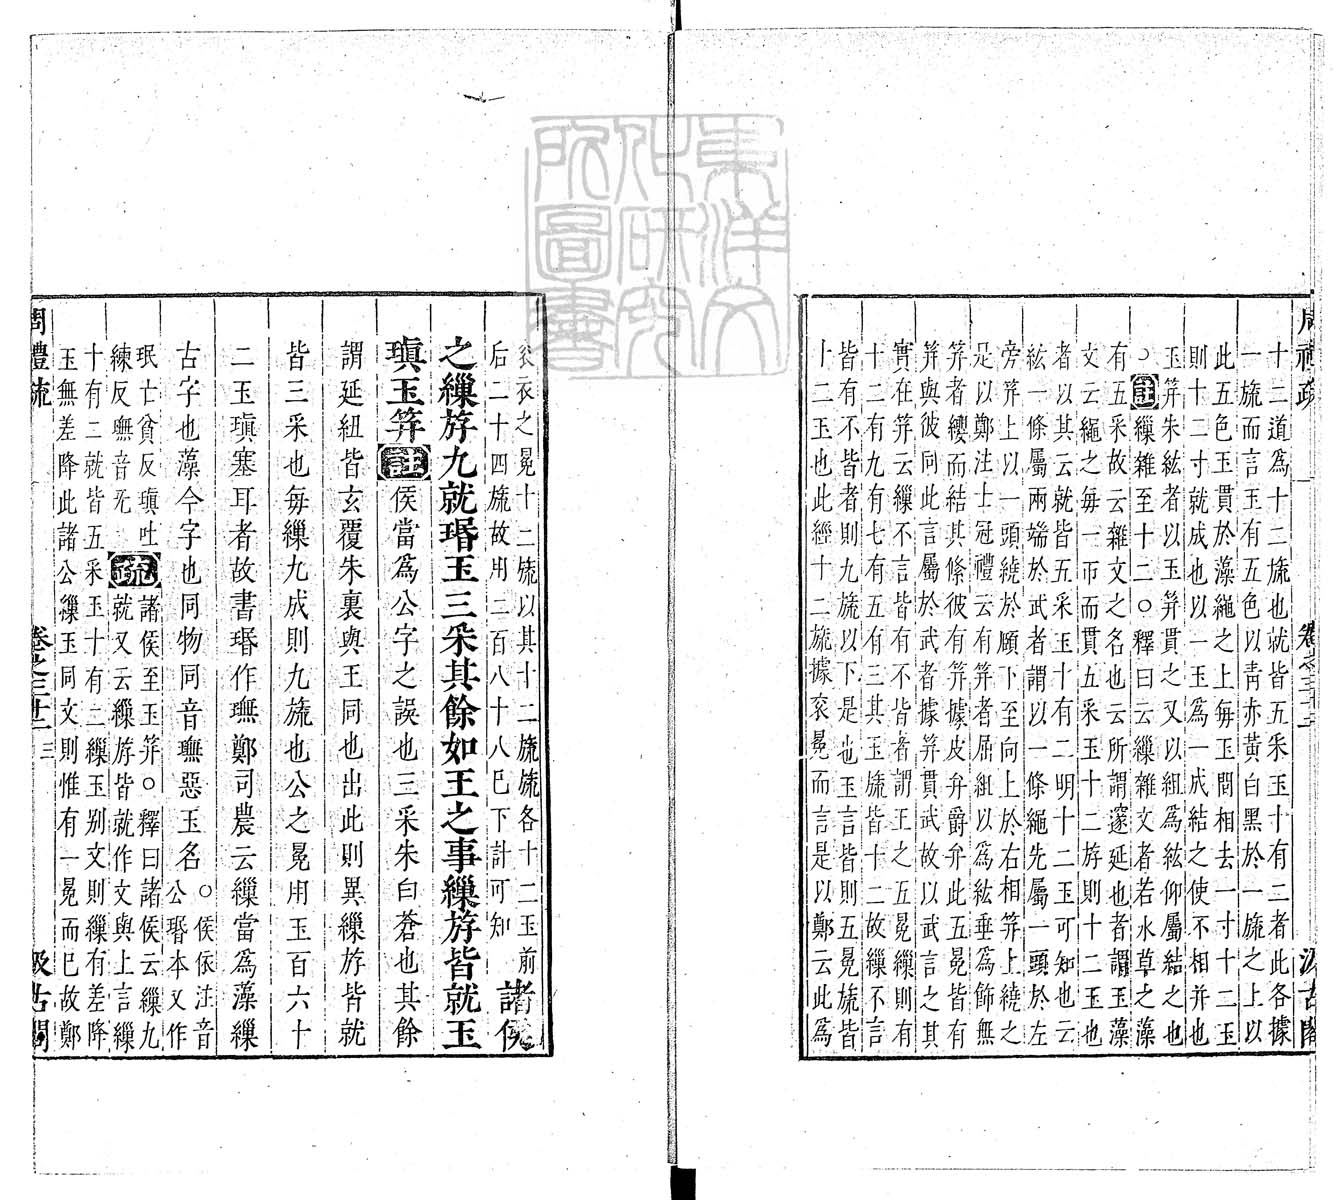 十二道爲十二旒也就皆五采玉十有二者此各據
一旒而言玉有五色以靑赤黄白黑於一旒之上以
此五色玉貫於藻繩之上每玉間相去一寸十二玉
則十二寸就成也以一玉爲一成結之使不相并也
玉筓朱紘者以玉筓貫之又以組爲紘仰屬結之也
○註繅雜至十二○釋曰云繅雜文者若水草之藻
有五采故云雜文之名也云所謂邃延也者謂玉藻
文云繩之每一帀而貫五采玉十二斿則十二玉也
者以其云就皆五采玉十有二明十二玉可知也云
紘一條屬兩端於武者謂以一條繩先屬一頭於左
旁筓上以一頭繞於頤下至向上於右相筓上繞之
足以鄭注士冠禮云有筓者屈組以爲紘垂爲飾無
筓者纓而結其絛彼有筓據皮弁爵弁此五冕皆有
筓與彼同此言屬於武者據筓貫武故以武言之其
實在筓云繅不言皆有不皆者謂王之五冕繅則有
十二有九有七有五有三其玉旒皆十二故繅不言
皆有不皆者則九旒以下是也玉言皆則五冕旒皆
十二玉也此經十二旒據衮冕而言是以鄭云此爲
衮衣之冕十二旒以其十二旒旒各十二玉前
后二十四旒故用二百八十八已下計可知
諸侯
之繅斿九就瑉玉三采其餘如王之事繅斿皆就玉
瑱玉筓註侯當爲公字之誤也三采朱白蒼也其餘
謂延紐皆玄覆朱裏與王同也出此則異繅斿皆就
皆三采也每繅九成則九旒也公之冕用玉百六十
二玉瑱塞耳者故書瑉作璑鄭司農云繅當爲藻繅
古字也藻今字也同物同音璑惡玉名○侯依注音
公瑉本又作
珉亡貧反瑱吐
練反璑音旡
疏諸侯至玉筓○釋曰諸侯云繅九
就又云繅斿皆就作文與上言繅
十有二就皆五采玉十有二繅玉别文則繅有差降
玉無差降此諸公繅玉同文則惟有一冕而已故鄭
周禮疏
卷之三十二
三
汲古閣